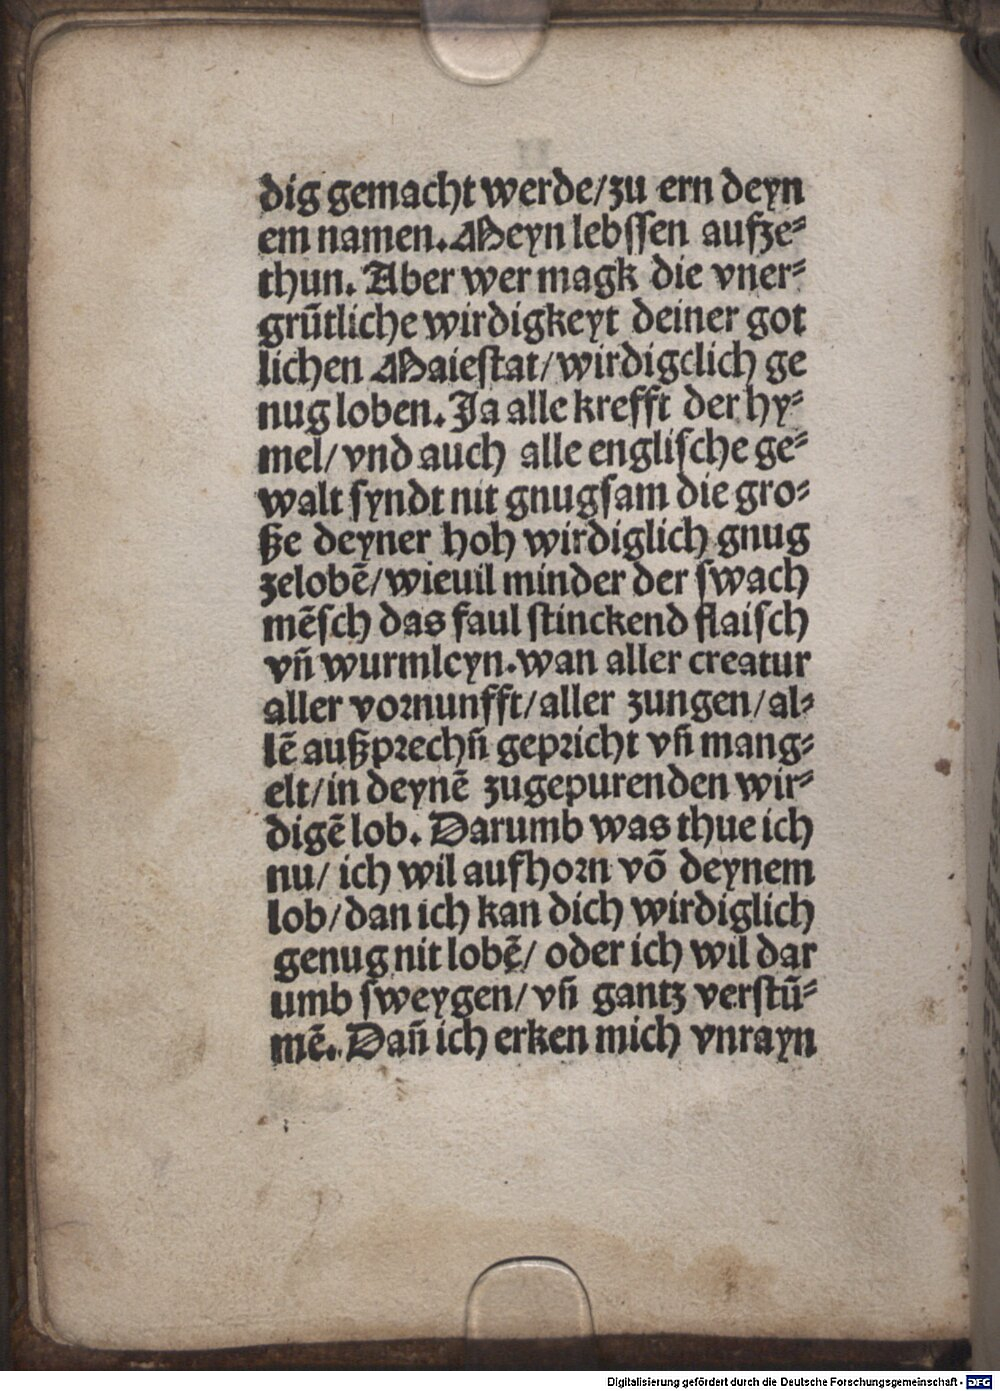 dig gemacht werde/zu ern deyn
em namen. Meyn lebssen aufze⸗
thun. Aber wer magk die vner⸗
grūtliche wirdigkeyt deiner got
lichen Maiestat/wirdigclich ge
nug loben. Ja alle krefft der hy⸗
mel/vnd auch alle englische ge⸗
walt syndt nit gnugsam die gro⸗
ße deyner hoh wirdiglich gnug
zelobē/wieuil minder der swach
mēsch das faul stinckend flaisch
vn̄ wurmleyn. wan aller creatur
aller vornunfft/aller zungen/al⸗
lē außprechn̄ gepricht vn̄ mang⸗
elt/in deynē zugepurenden wir⸗
digē lob. Darumb was thue ich
nu/ ich wil aufhorn vō deynem
lob/dan ich kan dich wirdiglich
genug nit lobē/ oder ich wil dar
umb sweygen/vn̄ gantz verstū⸗
mē. Dan̄ ich erken mich vnrayn
Digitalisierung gefördert durch die Deutsche Forschungsgemeinschaft - DFG